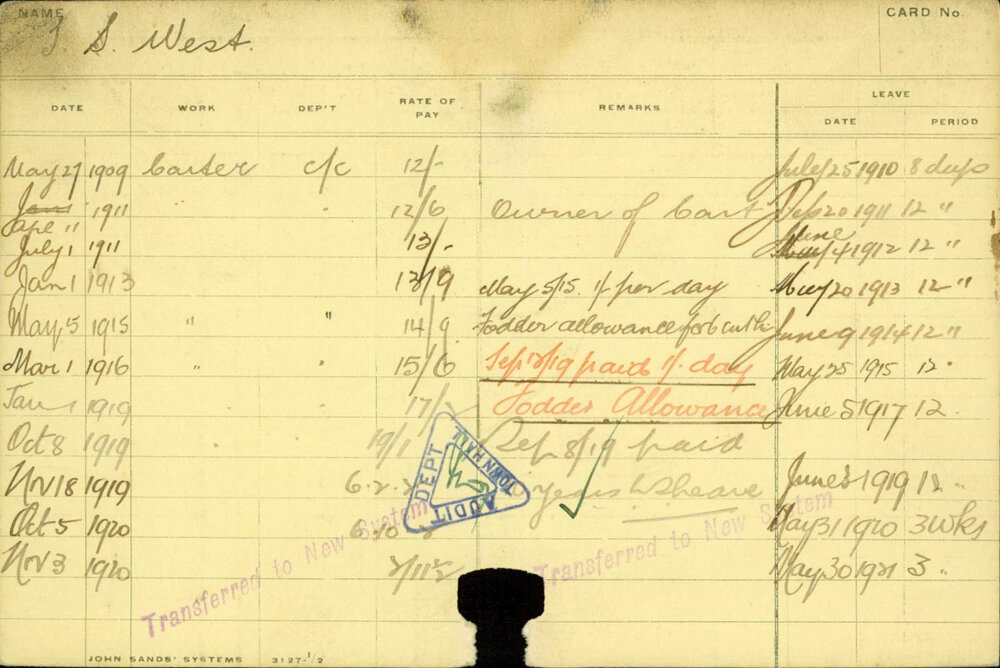 NAME
CARD No.
S. West.
DATE WORK DEP'T RATE OF PAY REMARKS LEAVE
DATE PERIOD
May 27 1909 Carter c/c 12/- July 25 1910 8 days
Jan 1 1911 " 12/6 Owner of Cart Sep 20 1911 12 "
Apl "
July 1 1911 13/- June 4 1912 12 "
Jan 1 1913 13/9 May 5/15. 1/ per day May 20 1913 12 "
May 5 1915 " " 14/9 Fodder allowance for 6 mths June 9 1914 12 "
Mar 1 1916 " " 15/6 Sep 12/19 paid 1/- day May 25 1915 12 "
Jan 1 1919 17/- Fodder Allowance June 5 1917 12 "
Oct 8 1919 19/1 Sep 8/19 paid
Nov 18 1919 6.2. years June 3 1919 12 "
Oct 5 1920 May 31 1920 3 wks
Nov 3 1920 May 30 1921 3 "
AUDIT DEPT TOWN HALL
Transferred to New System
Transferred to New System
JOHN SANDS' SYSTEMS 3127-1/2